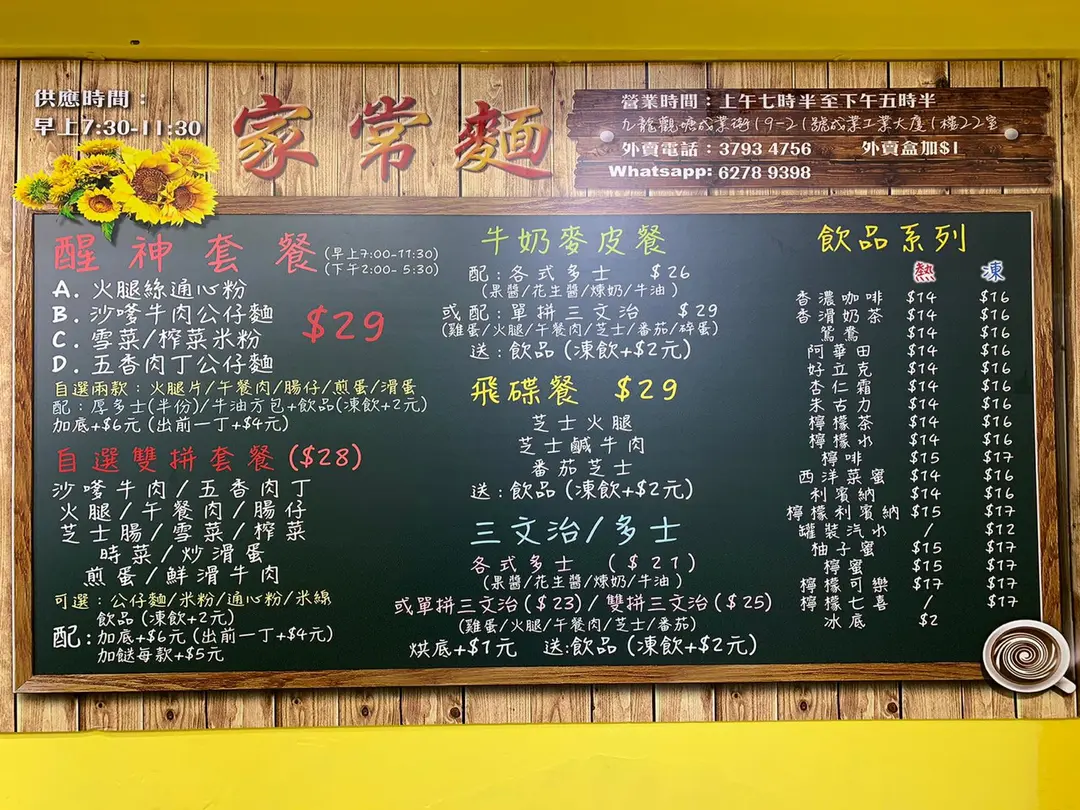 供應時間：
早上7:30-11:30
家常麵
營業時間：上午七時半至下午五時半
九龍觀塘成業街19-21號成業工業大廈1樓22室
外賣電話：3793 4756 外賣盒加$1
Whatsapp: 6278 9398
醒神套餐 (早上7:00-11:30)
(下午2:00-5:30)
A. 火腿絲通心粉
B. 沙嗲牛肉公仔麵
C. 雪菜/榨菜米粉
D. 五香肉丁公仔麵
$29
自選兩款：火腿片/午餐肉/腸仔/煎蛋/滑蛋
配：厚多士(半份)/牛油方包+飲品(凍飲+2元)
加底+$6元 (出前一丁+$4元)
自選雙拼套餐 ($28)
沙嗲牛肉/五香肉丁
火腿/午餐肉/腸仔
芝士腸/雪菜/榨菜
時菜/炒滑蛋
煎蛋/鮮滑牛肉
可選：公仔麵/米粉/通心粉/米線
飲品 (凍飲+2元)
配: 加底+$6元 (出前一丁+$4元)
加餸每款+$5元
牛奶麥皮餐
配：各式多士 $26
(果醬/花生醬/煉奶/牛油)
或配：單拼三文治 $29
(雞蛋/火腿/午餐肉/芝士/番茄/碎蛋)
送：飲品 (凍飲+$2元)
飛碟餐 $29
芝士火腿
芝士鹹牛肉
番茄芝士
送：飲品 (凍飲+$2元)
三文治/多士
各式多士 ($21)
(果醬/花生醬/煉奶/牛油)
或單拼三文治($23)/雙拼三文治($25)
(雞蛋/火腿/午餐肉/芝士/番茄)
烘底+$1元 送:飲品 (凍飲+$2元)
飲品系列
熱 凍
香濃咖啡 $14 $16
香滑奶茶 $14 $16
鴛鴦 $14 $16
阿華田 $14 $16
好立克 $14 $16
杏仁霜 $14 $16
朱古力 $14 $16
檸檬茶 $14 $16
檸檬水 $14 $16
檸啡 $15 $17
西洋菜蜜 $14 $16
利賓納 $14 $16
檸檬利賓納 $15 $17
罐裝汽水 / $12
柚子蜜 $15 $17
檸蜜 $15 $17
檸檬可樂 $17 $17
檸檬七喜 / $17
冰底 $2